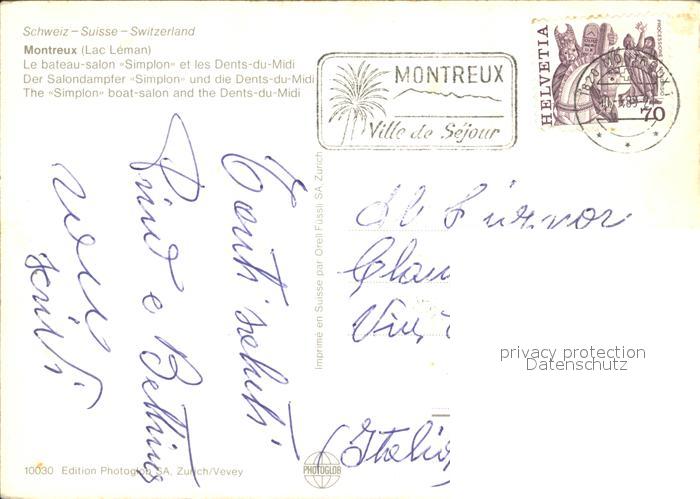 Schweiz – Suisse – Switzerland
Montreux (Lac Léman)
Le bateau-salon «Simplon» et les Dents-du-Midi
Der Salondampfer «Simplon» und die Dents-du-Midi
The «Simplon» boat-salon and the Dents-du-Midi
MONTREUX
Ville de Séjour
HELVETIA
70
1820 MONTREUX 1
Tanti saluti
Pino e Bettina
Imprimé en Suisse par Orell Füssli SA, Zurich
Al Signor
Clau
Italia
privacy protection
Datenschutz
10030 Edition Photoglob SA, Zurich/Vevey
PHOTOGLOB